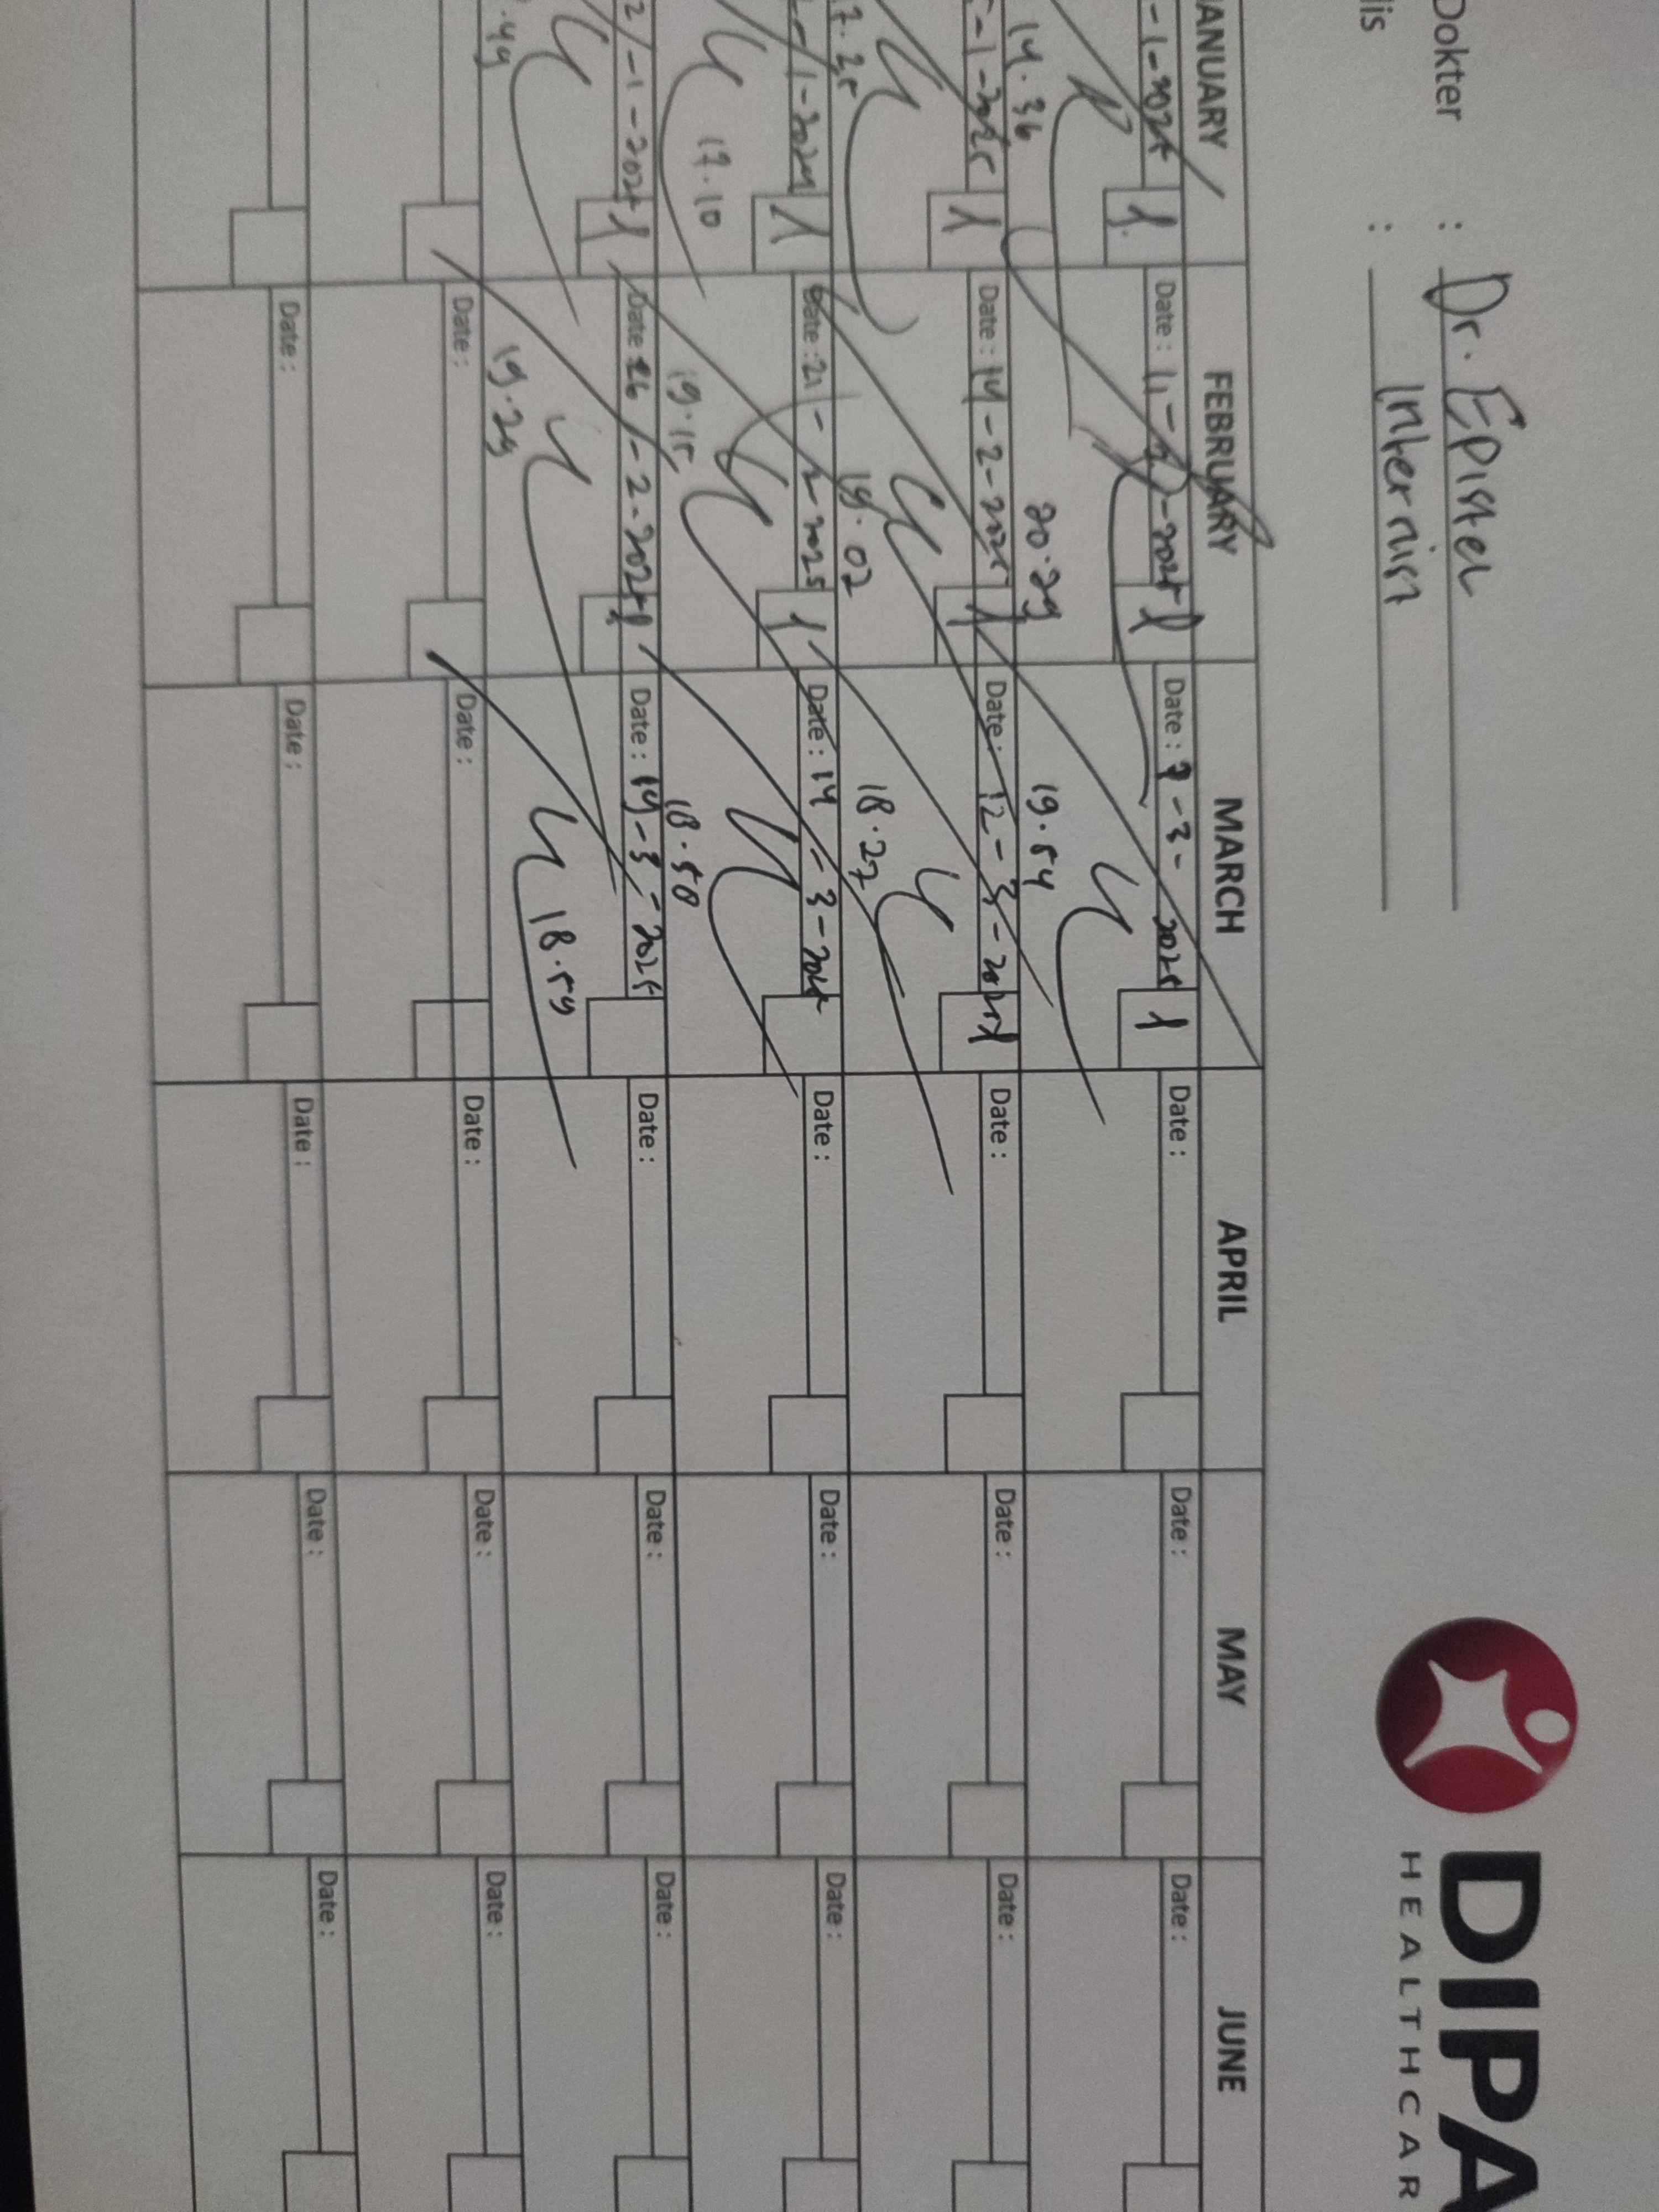 DIPA
HEALTHCAR
Dokter : Dr. Epistel
lis : Internist
ANUARY FEBRUARY MARCH APRIL MAY JUNE
1 Date : 11 - 2 - 2025 1 Date : 7 - 3 - 2025 1 Date : Date : Date :
14.36 20.29 19.54
- 1 - 2025 1 Date : 14 - 2 - 2025 1 Date : 12 - 3 - 2025 1 Date : Date : Date :
7.25 19.02 18.27
1 Date : 21 - 2 - 2025 1 Date : 14 - 3 - 2025 Date : Date : Date :
17.10 19.15 18.50
1 Date : 26 - 2 - 2025 1 Date : 19 - 3 - 2025 Date : Date : Date :
.49 19.29 18.59
Date : Date : Date : Date : Date :
Date : Date : Date : Date : Date :